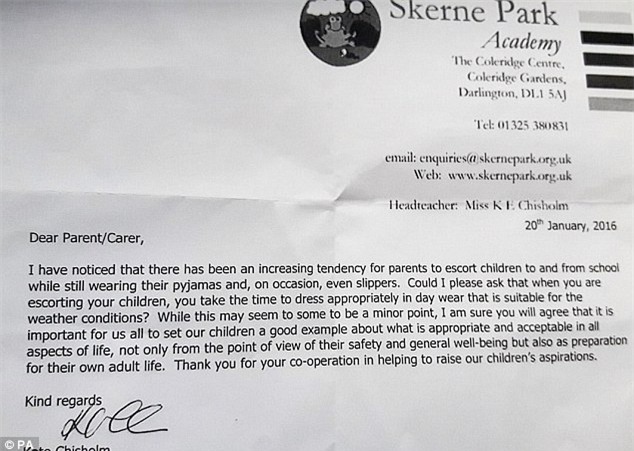 Skerne Park
Academy
The Coleridge Centre,
Coleridge Gardens,
Darlington, DL1 5AJ
Tel: 01325 380831
email: enquiries@skernepark.org.uk
Web: www.skernepark.org.uk
Headteacher: Miss K E Chisholm
20th January, 2016
Dear Parent/Carer,
I have noticed that there has been an increasing tendency for parents to escort children to and from school
while still wearing their pyjamas and, on occasion, even slippers. Could I please ask that when you are
escorting your children, you take the time to dress appropriately in day wear that is suitable for the
weather conditions? While this may seem to some to be a minor point, I am sure you will agree that it is
important for us all to set our children a good example about what is appropriate and acceptable in all
aspects of life, not only from the point of view of their safety and general well-being but also as preparation
for their own adult life. Thank you for your co-operation in helping to raise our children's aspirations.
Kind regards
Kate Chisholm
© PA